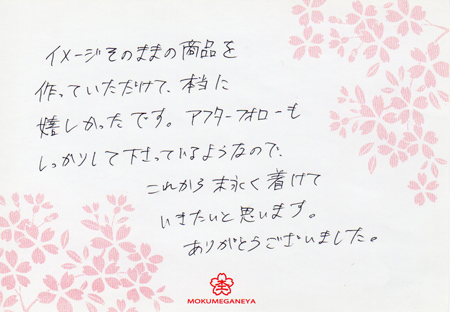 イメージそのままの商品を
作っていただけて、本当に
嬉しかったです。アフターフォローも
しっかりして下さっているようなので、
これから末永く着けて
いきたいと思います。
ありがとうございました。
MOKUMEGANEYA